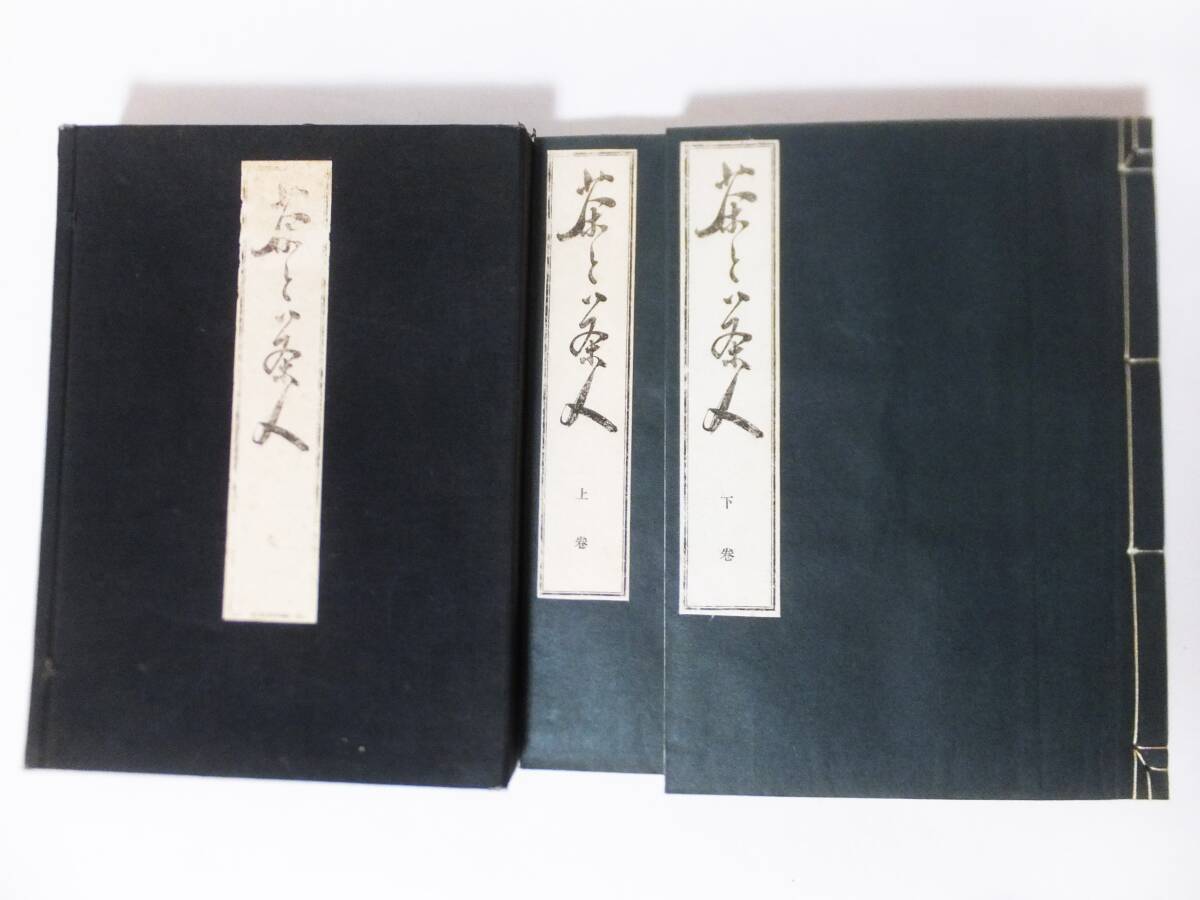 茶と茶人
茶と茶人 上卷
茶と茶人 下卷